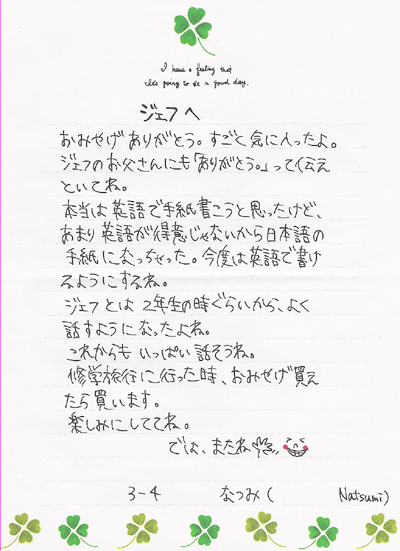 I have a feeling that
it's going to be a good day.
ジェフへ
おみやげありがとう。すごと気に入ったよ。
ジェフのお父さんにも「ありがとう。」って伝え
といてね。
本当は英語で手紙書こうと思ったけど、
あまり英語が得意じゃないから日本語の
手紙になっちゃった。今度は英語で書け
るようにするね。
ジェフとは2年生の時ぐらいから、よく
話すようになったよね。
これからもいっぱい話そうね。
修学旅行に行った時、おみやげ買え
たら買います。
楽しみにしててね。
では、またね
3-4 なつみ( Natsumi)